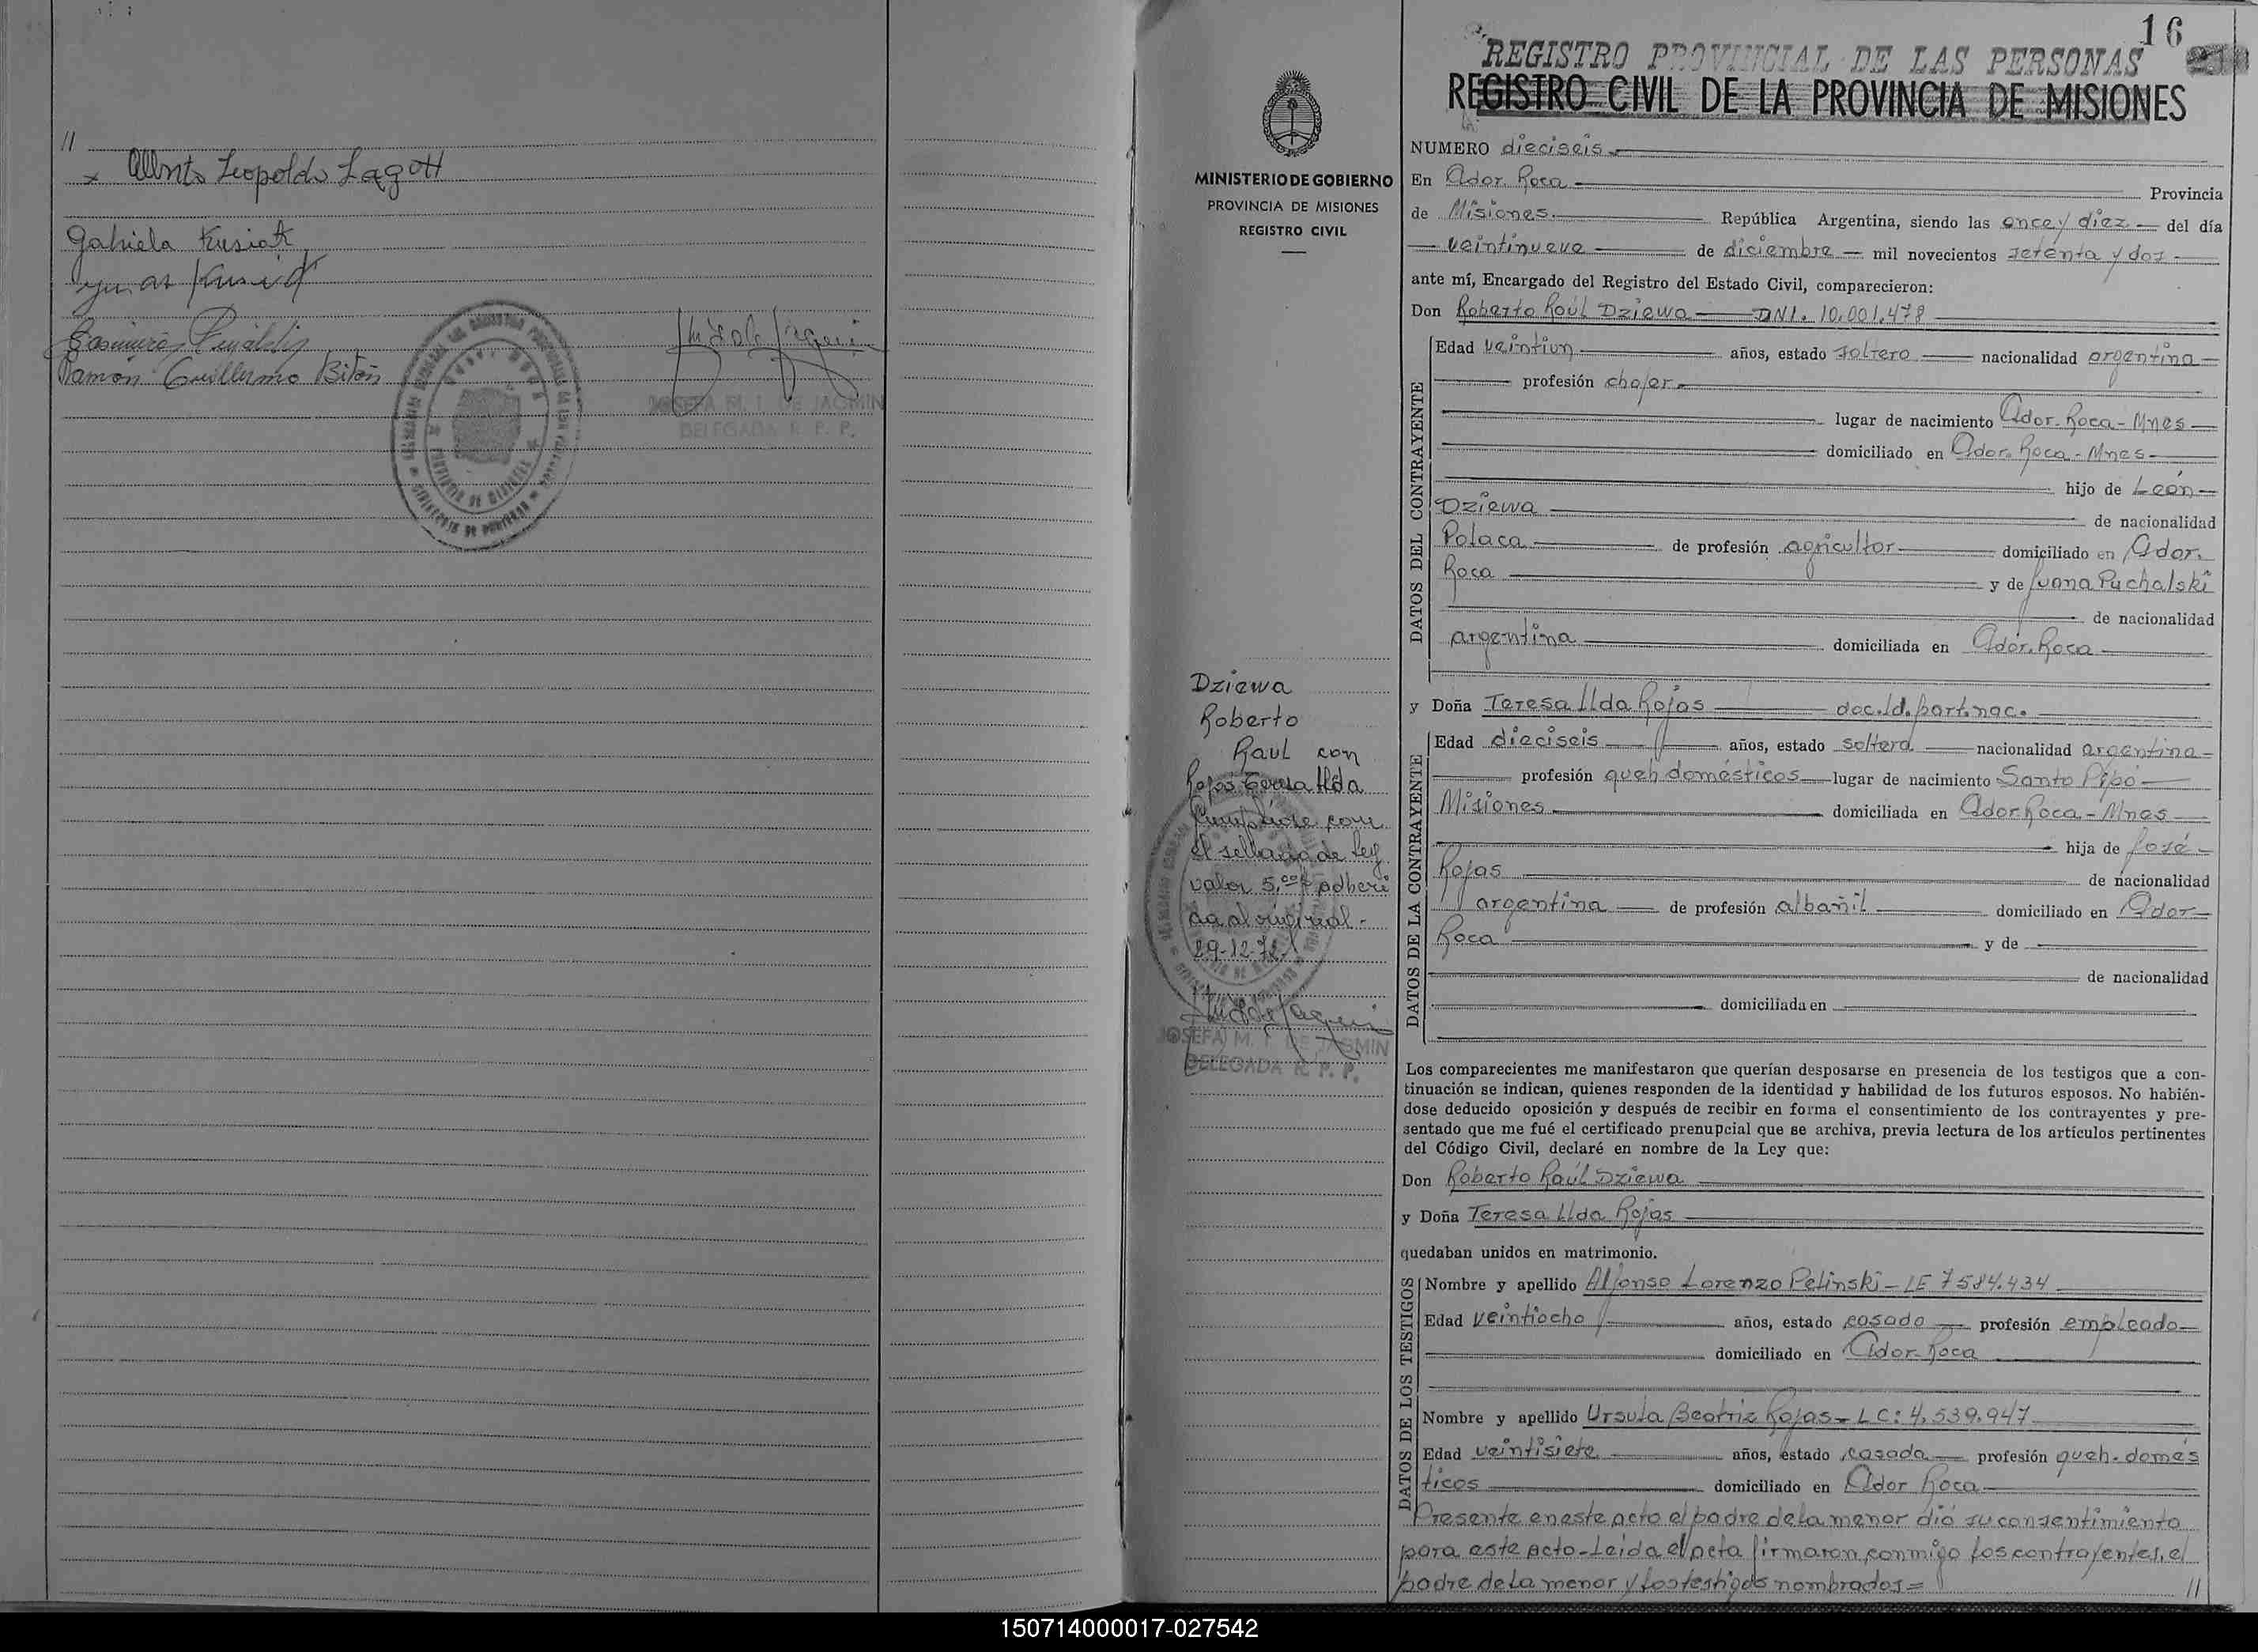 //
x Alberto Leopoldo Lagott
Gabriela Kusiak
Kusiak
Casimiro
Ramón Guillermo Bitón
JOSEFA M. I. DE JACMIN
DELEGADA R. P. P.
16
REGISTRO PROVINCIAL DE LAS PERSONAS
REGISTRO CIVIL DE LA PROVINCIA DE MISIONES
MINISTERIO DE GOBIERNO
PROVINCIA DE MISIONES
REGISTRO CIVIL
NUMERO dieciseis
En Gdor. Roca Provincia
de Misiones. República Argentina, siendo las once y diez del día
veintinueve de diciembre mil novecientos setenta y dos
ante mí, Encargado del Registro del Estado Civil, comparecieron:
Don Roberto Raúl Dziewa DNI. 10.001.478
DATOS DEL CONTRAYENTE
Edad veintiun años, estado soltero nacionalidad argentina
profesión chofer
lugar de nacimiento Gdor. Roca - Mnes
domiciliado en Gdor. Roca - Mnes
hijo de León
Dziewa de nacionalidad
Polaca de profesión agricultor domiciliado en Gdor.
Roca y de Juana Puchalski
de nacionalidad
argentina domiciliada en Gdor. Roca
Dziewa
Roberto
Raul con
Rojas Teresa Ilda
Cumplióse con
el sellado de ley
valor 5,00 adheri
da al original -
29-12-72
JOSEFA M. I. DE JACMIN
DELEGADA R. P. P.
y Doña Teresa Ilda Rojas doc. Id. part. nac.
DATOS DE LA CONTRAYENTE
Edad dieciseis años, estado soltera nacionalidad argentina
profesión queh domésticos lugar de nacimiento Santo Pipó
Misiones domiciliada en Gdor. Roca - Mnes
hija de José
Rojas de nacionalidad
argentina de profesión albañil domiciliado en Gdor
Roca y de
de nacionalidad
domiciliada en
Los comparecientes me manifestaron que querían desposarse en presencia de los testigos que a con-
tinuación se indican, quienes responden de la identidad y habilidad de los futuros esposos. No habién-
dose deducido oposición y después de recibir en forma el consentimiento de los contrayentes y pre-
sentado que me fué el certificado prenupcial que se archiva, previa lectura de los artículos pertinentes
del Código Civil, declaré en nombre de la Ley que:
Don Roberto Raúl Dziewa
y Doña Teresa Ilda Rojas
quedaban unidos en matrimonio.
DATOS DE LOS TESTIGOS
Nombre y apellido Alfonso Lorenzo Pelinski - LE 7584.434
Edad veintiocho años, estado casado profesión empleado
domiciliado en Gdor. Roca
Nombre y apellido Ursula Beatriz Rojas - LC: 4.539.947
Edad veintisiete años, estado casada profesión queh. domés
ticos domiciliado en Gdor Roca
Presente en este acto el padre de la menor dió su consentimiento
para este acto - Leida el acta firmaron conmigo los contrayentes, el
padre de la menor y los testigos nombrados = //
150714000017-027542